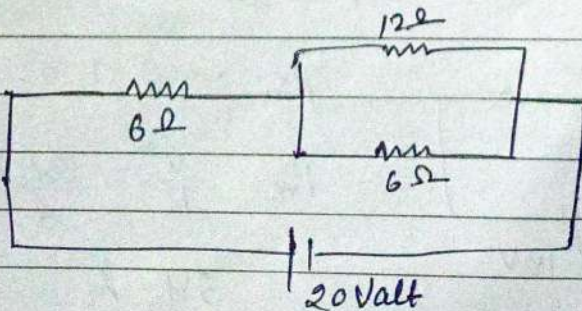 12Ω
6Ω
6Ω
20 Valt